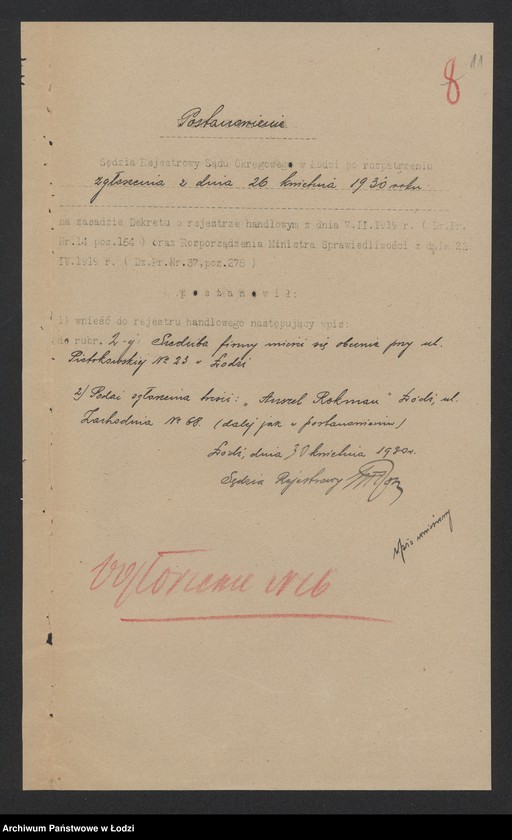 8 11
Postanowienie
Sędzia Rejestrowy Sądu Okręgowego w Łodzi po rozpatrzeniu
zgłoszenia z dnia 26 kwietnia 1930 roku
na zasadzie Dekretu o rejestrze handlowym z dnia 7.II.1919 r. ( Dz.Pr.
Nr.14 poz.164 ) oraz Rozporządzenia Ministra Sprawiedliwości z dnia 22
IV.1919 r. ( Dz.Pr.Nr.37,poz.278 )
p o s t a n o w i ł :
1) wnieść do rejestru handlowego następujący wpis:
do rubr. 2-ej Siedziba firmy mieści się obecnie przy ul.
Piotrkowskiej № 23 w Łodzi
2) Podać ogłoszenia treść: „Anszel Rokman" Łódź, ul.
Zachodnia № 68. (dalej jak w postanowieniu)
Łódź, dnia 30 kwietnia 1930 r.
Sędzia Rejestrowy
Wpis uczyniony
Ogłoszenie
Archiwum Państwowe w Łodzi